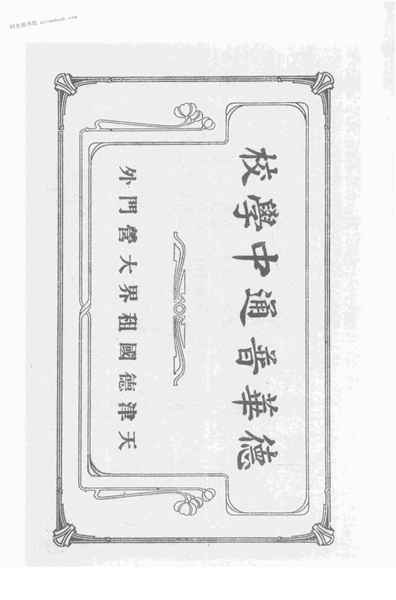 德華普通中學校
天津德國租界大營門外